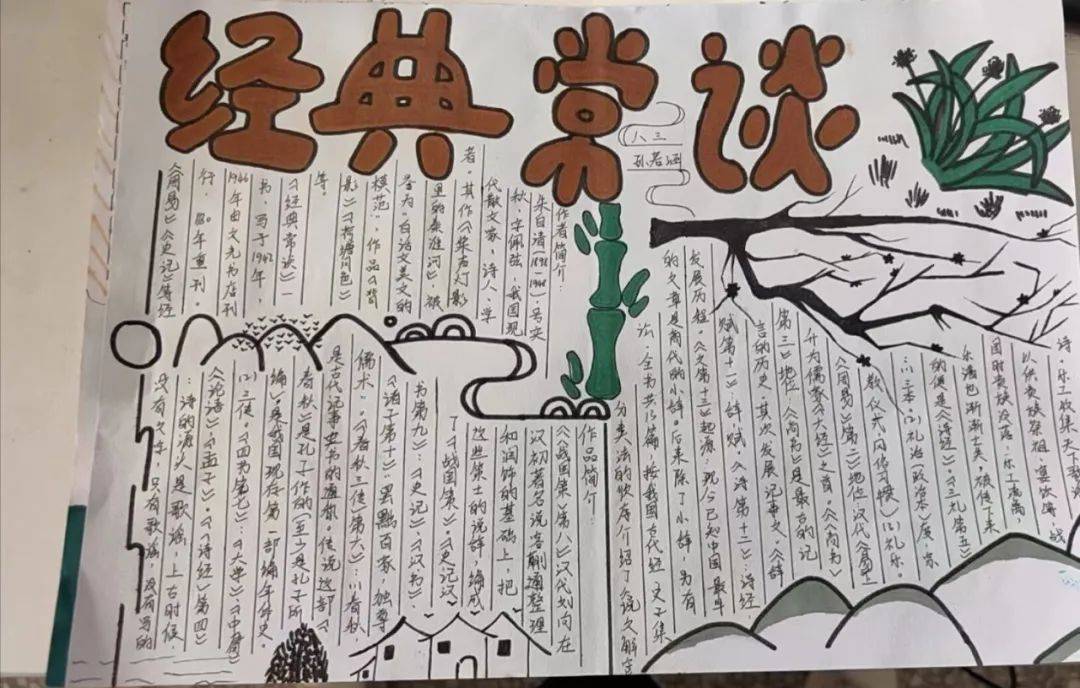 经典常谈
八三
孙若涵
作者简介:
朱自清(1898-1948)号实
秋,字佩弦 我国现
代散文家,诗人,学
者。其作《桨声灯影
里的秦淮河》,被
誉为“白话文美文的
模范”,作品《背
影》《荷塘月色》
等。
《经典常谈》一
书,写于1942年,
1946年由文光书店刊
行,80年重刊。
《周易》《史记》等经
诗,乐工收集天下歌
以供贵族祭祖,宴饮等 战
国时贵族没落,乐工流离,
乐谱也渐渐亡失,被传下来
的便是《诗经》《三礼第五》
:①三本。(2)礼治(政治本)度,宗
教仪式 风俗习惯)(3)礼乐。
《周易》第(二)地位 汉代
升为儒家《六经》之首,《尚书》
第三 ①地位《尚书》是最古的记
言的历史,其次,发展,记事文,《辞
赋第十一》:辞,赋,《诗第十二》:诗经
发展历程。《文第十三》起源,现今已知中国最早
的文章是商代的卜辞。后来除了卜辞 另有
法,全书共13篇,按我国古代经 史子集
分类法的次序介绍了《说文解字
作品简介:
《战国策》第八 汉代刘向在
汉初著名说客蒯通整理
和润饰的基础上,把
这些策士的说辞,编成
了《战国策》《史记汉
书第九》:《史记》,《汉书》.
《诸子第十》:罢黜百家,独尊
儒术,《春秋三传》(第六),①春秋,
是古代记事史书的通称。传说这部《
春秋》是孔子作的(至少是孔子所
编)是我国现存第一部编年体史,
(2)三传。《四书第七》:《大学》《中庸》
《论语》《孟子》。《诗经》第(四)
:诗的源头是歌谣,上古时候,
没有文字,只有歌谣,没有写的